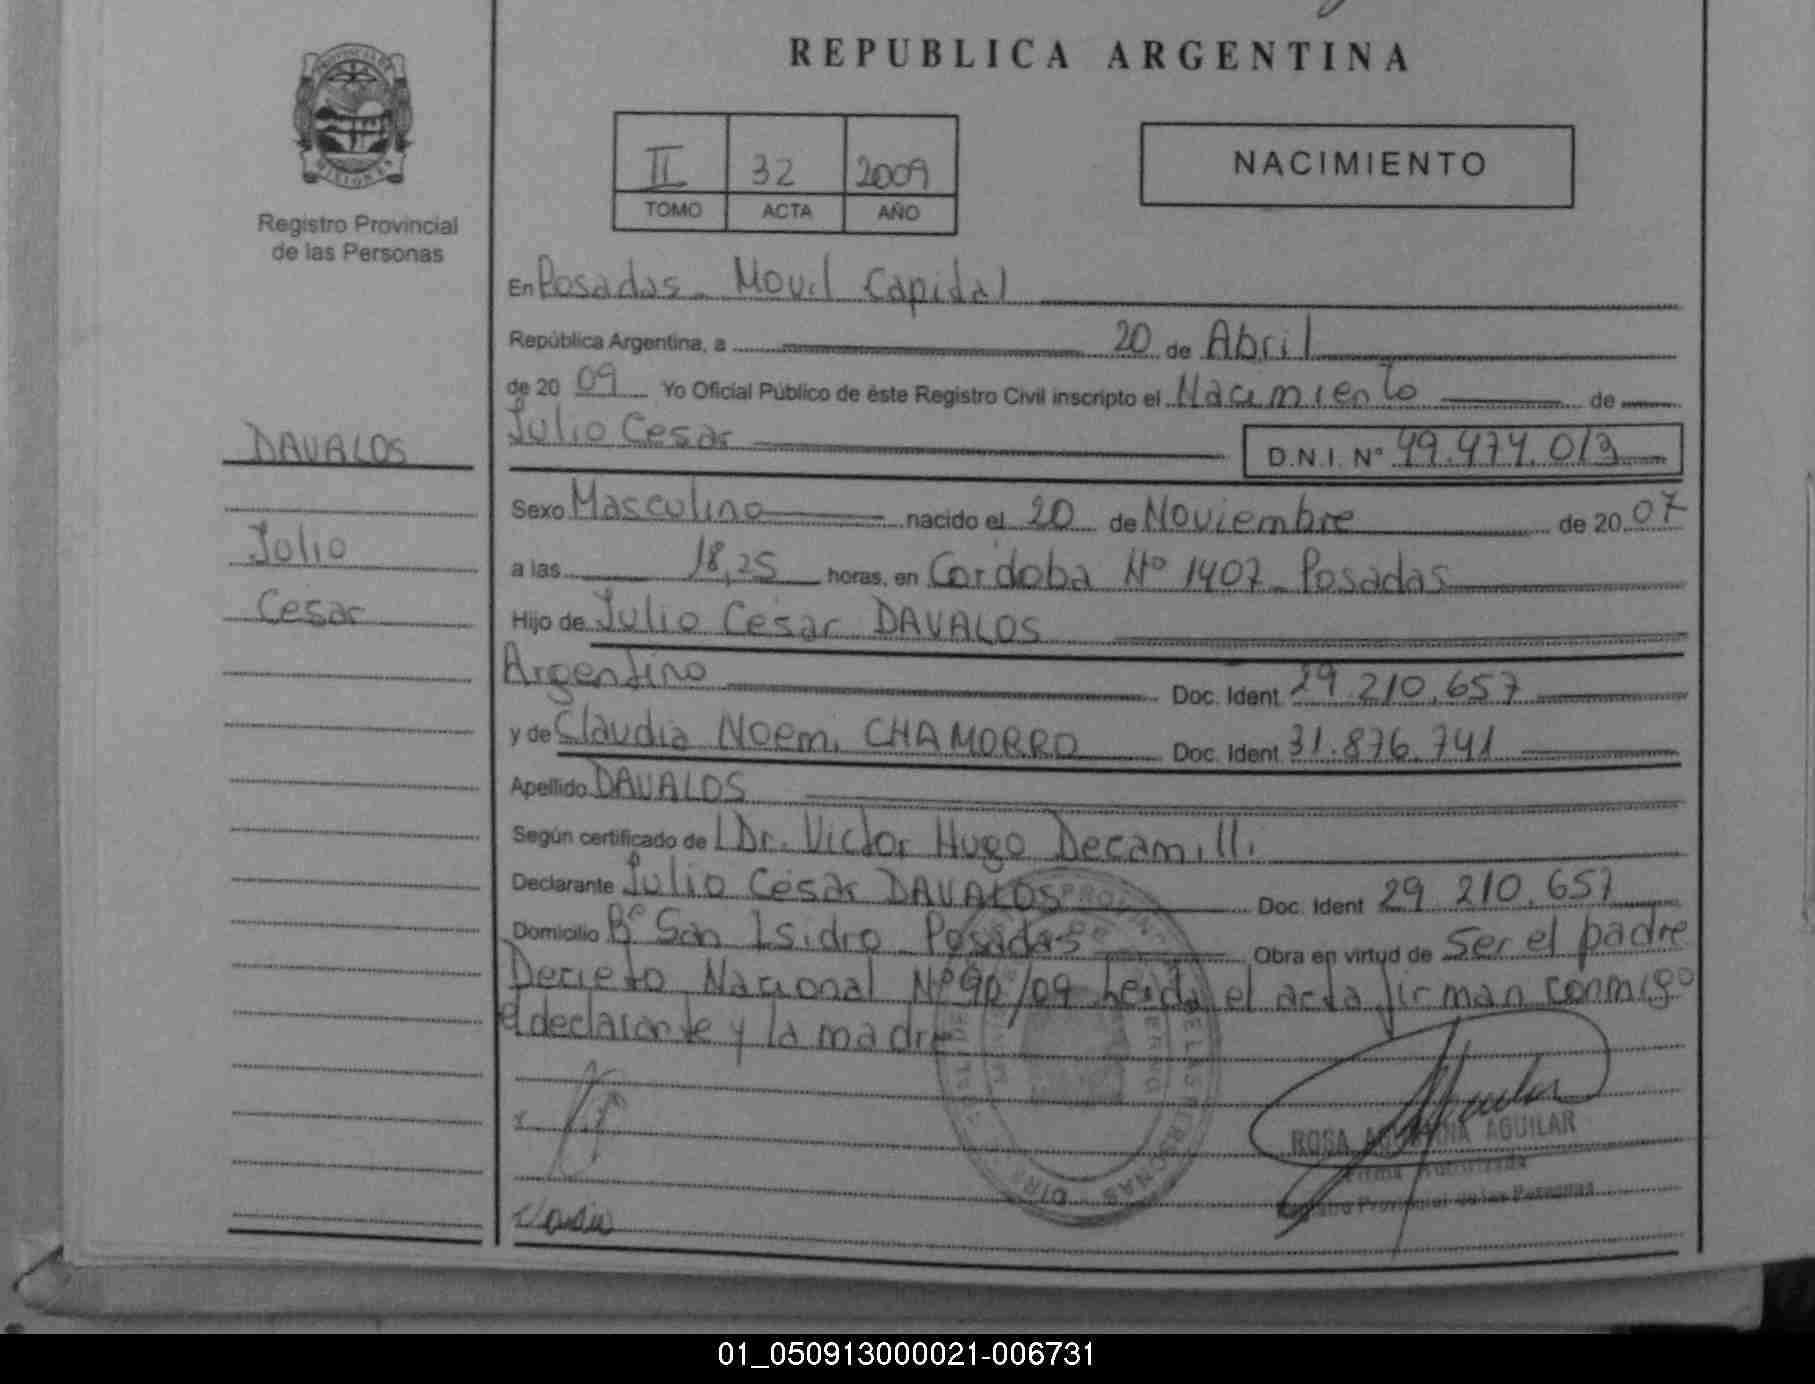 REPUBLICA ARGENTINA
PROVINCIA DE
MISIONES
Registro Provincial
de las Personas
II 32 2009
TOMO ACTA AÑO
NACIMIENTO
En Posadas - Movil Capidal
República Argentina, a 20 de Abril
de 20 09 Yo Oficial Público de éste Registro Civil inscripto el Nacimiento de
Julio Cesar D.N.I. Nº 49.474.013
DAVALOS
Julio
Cesar
Sexo Masculino nacido el 20 de Noviembre de 20 07
a las 18,25 horas, en Cordoba Nº 1407 - Posadas
Hijo de Julio Cesar DAVALOS
Argentino Doc. Ident. 29.210.657
y de Claudia Noemi CHAMORRO Doc. Ident. 31.876.741
Apellido DAVALOS
Según certificado de l Dr. Victor Hugo Decamilli
Declarante Julio Cesar DAVALOS Doc. Ident 29 210.657
Domicilio Bº San Isidro Posadas Obra en virtud de ser el padre
Decreto Nacional Nº 90/09 Leida el acta firman conmigo
el declarante y la madre
ROSA AGUILAR
Firma Autorizada
Registro Provincial de las Personas
01_050913000021-006731